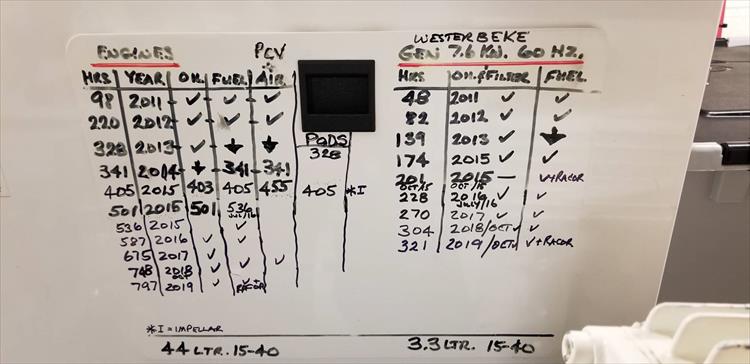 ENGINES PCV
HRS YEAR OIL FUEL AIR
98 2011 ✓ ✓ ✓
220 2012 ✓ ✓ ✓
328 2013 ✓ ↓ ↓
341 2014 ↓ 341 341
405 2015 403 405 455
501 2015 501 536
JUL/16
536 2015 ✓
587 2016 ✓ ✓
675 2017 ✓ ✓ ✓
748 2018 ✓ ✓
797 2019 ✓ ✓+
RACOR
PODS
328
405 *I
WESTERBEKE
GEN 7.6 KW. 60 HZ.
HRS OIL & FILTER FUEL
48 2011 ✓ ✓
82 2012 ✓ ✓
139 2013 ✓ ↓
174 2015 ✓ ✓
201 2015 — ✓+RACOR
OCT 15 OCT/15
228 2016 ✓ ✓
JULY/16
270 2017 ✓ ✓
304 2018/OCT ✓ ✓
321 2019/OCT ✓+RACOR
*I = IMPELLAR
44 LTR. 15-40
3.3 LTR. 15-40